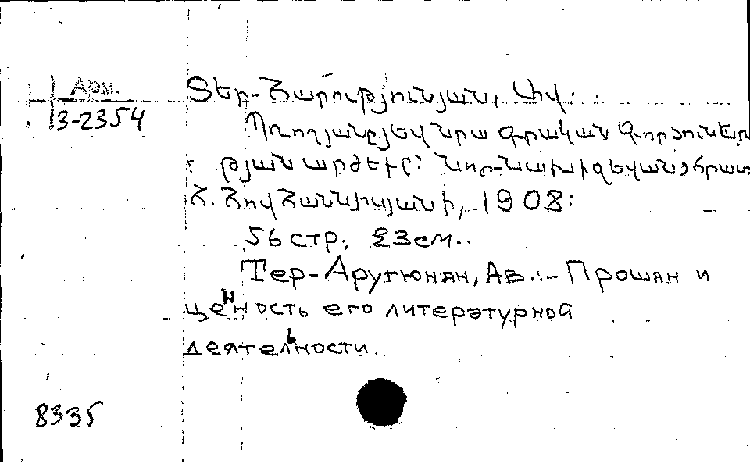 Арм.
3-2354
Տեր-Հարությունյան, Ավ.
Պռոշյանը յեվ նրա գրական գործունեու
թյան արժեքը: Նոր-Նախիջեվան, տպրատ
Հ. Հովհաննիսյանի, 1908:
56 стр. 23 см.
Тер-Арутюнян, Ав. - Прошян и
ценность его литературной
деятельности.
8335